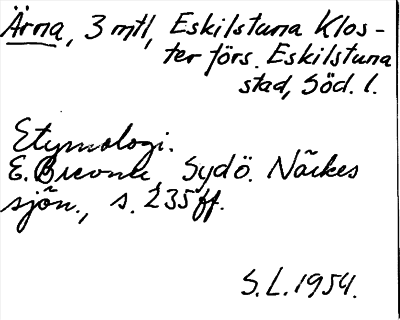 Ärna, 3 mtl, Eskilstuna Klos-
ter förs. Eskilstuna
stad, Söd. l.
Etymologi.
E. Brevner, Sydö. Närkes
sjön., s. 235 ff.
S.L. 1954.